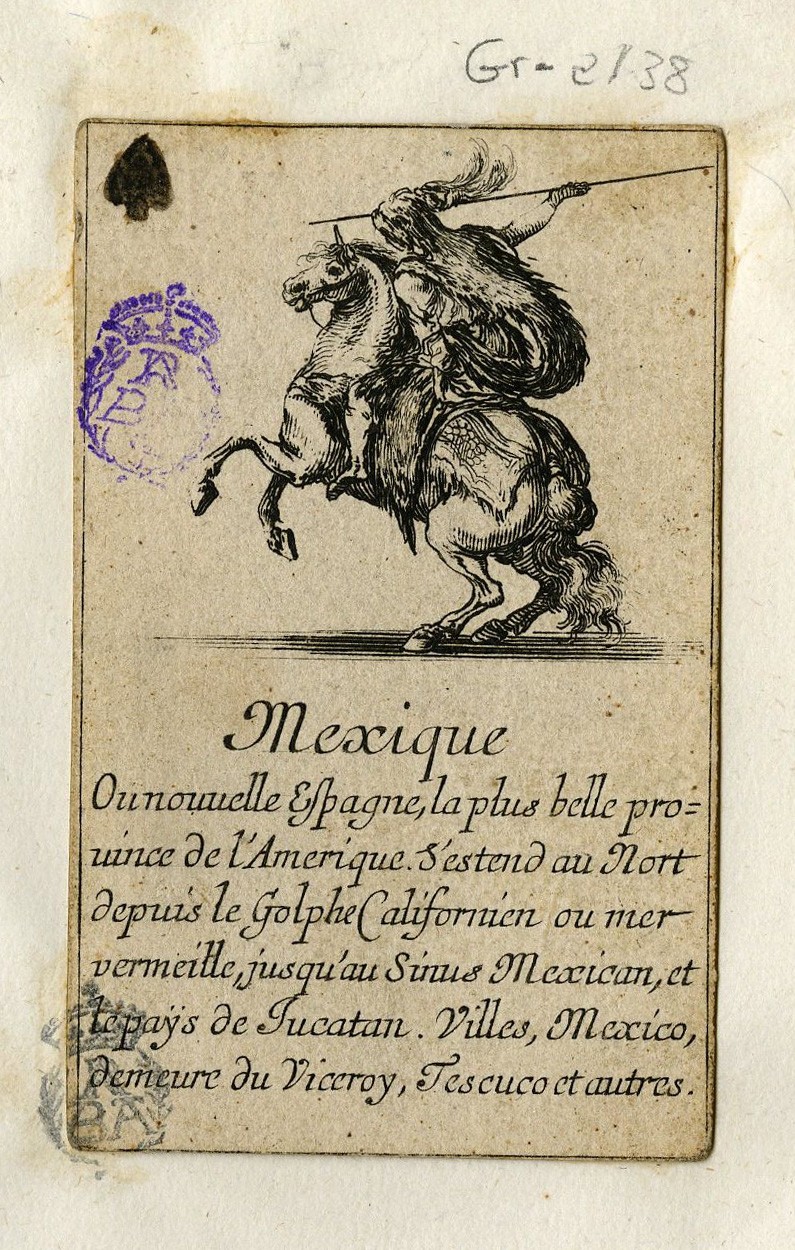 Gr-2138
Mexique
Ou nouuelle Espagne, la plus belle pro=
uince de l'Amerique. S'estend au Nort
depuis le Golphe Californien ou mer
vermeille, jusqu'au Sinus Mexican, et
le païs de Jucatan. Villes, Mexico,
demeure du Viceroy, Tescuco et autres.